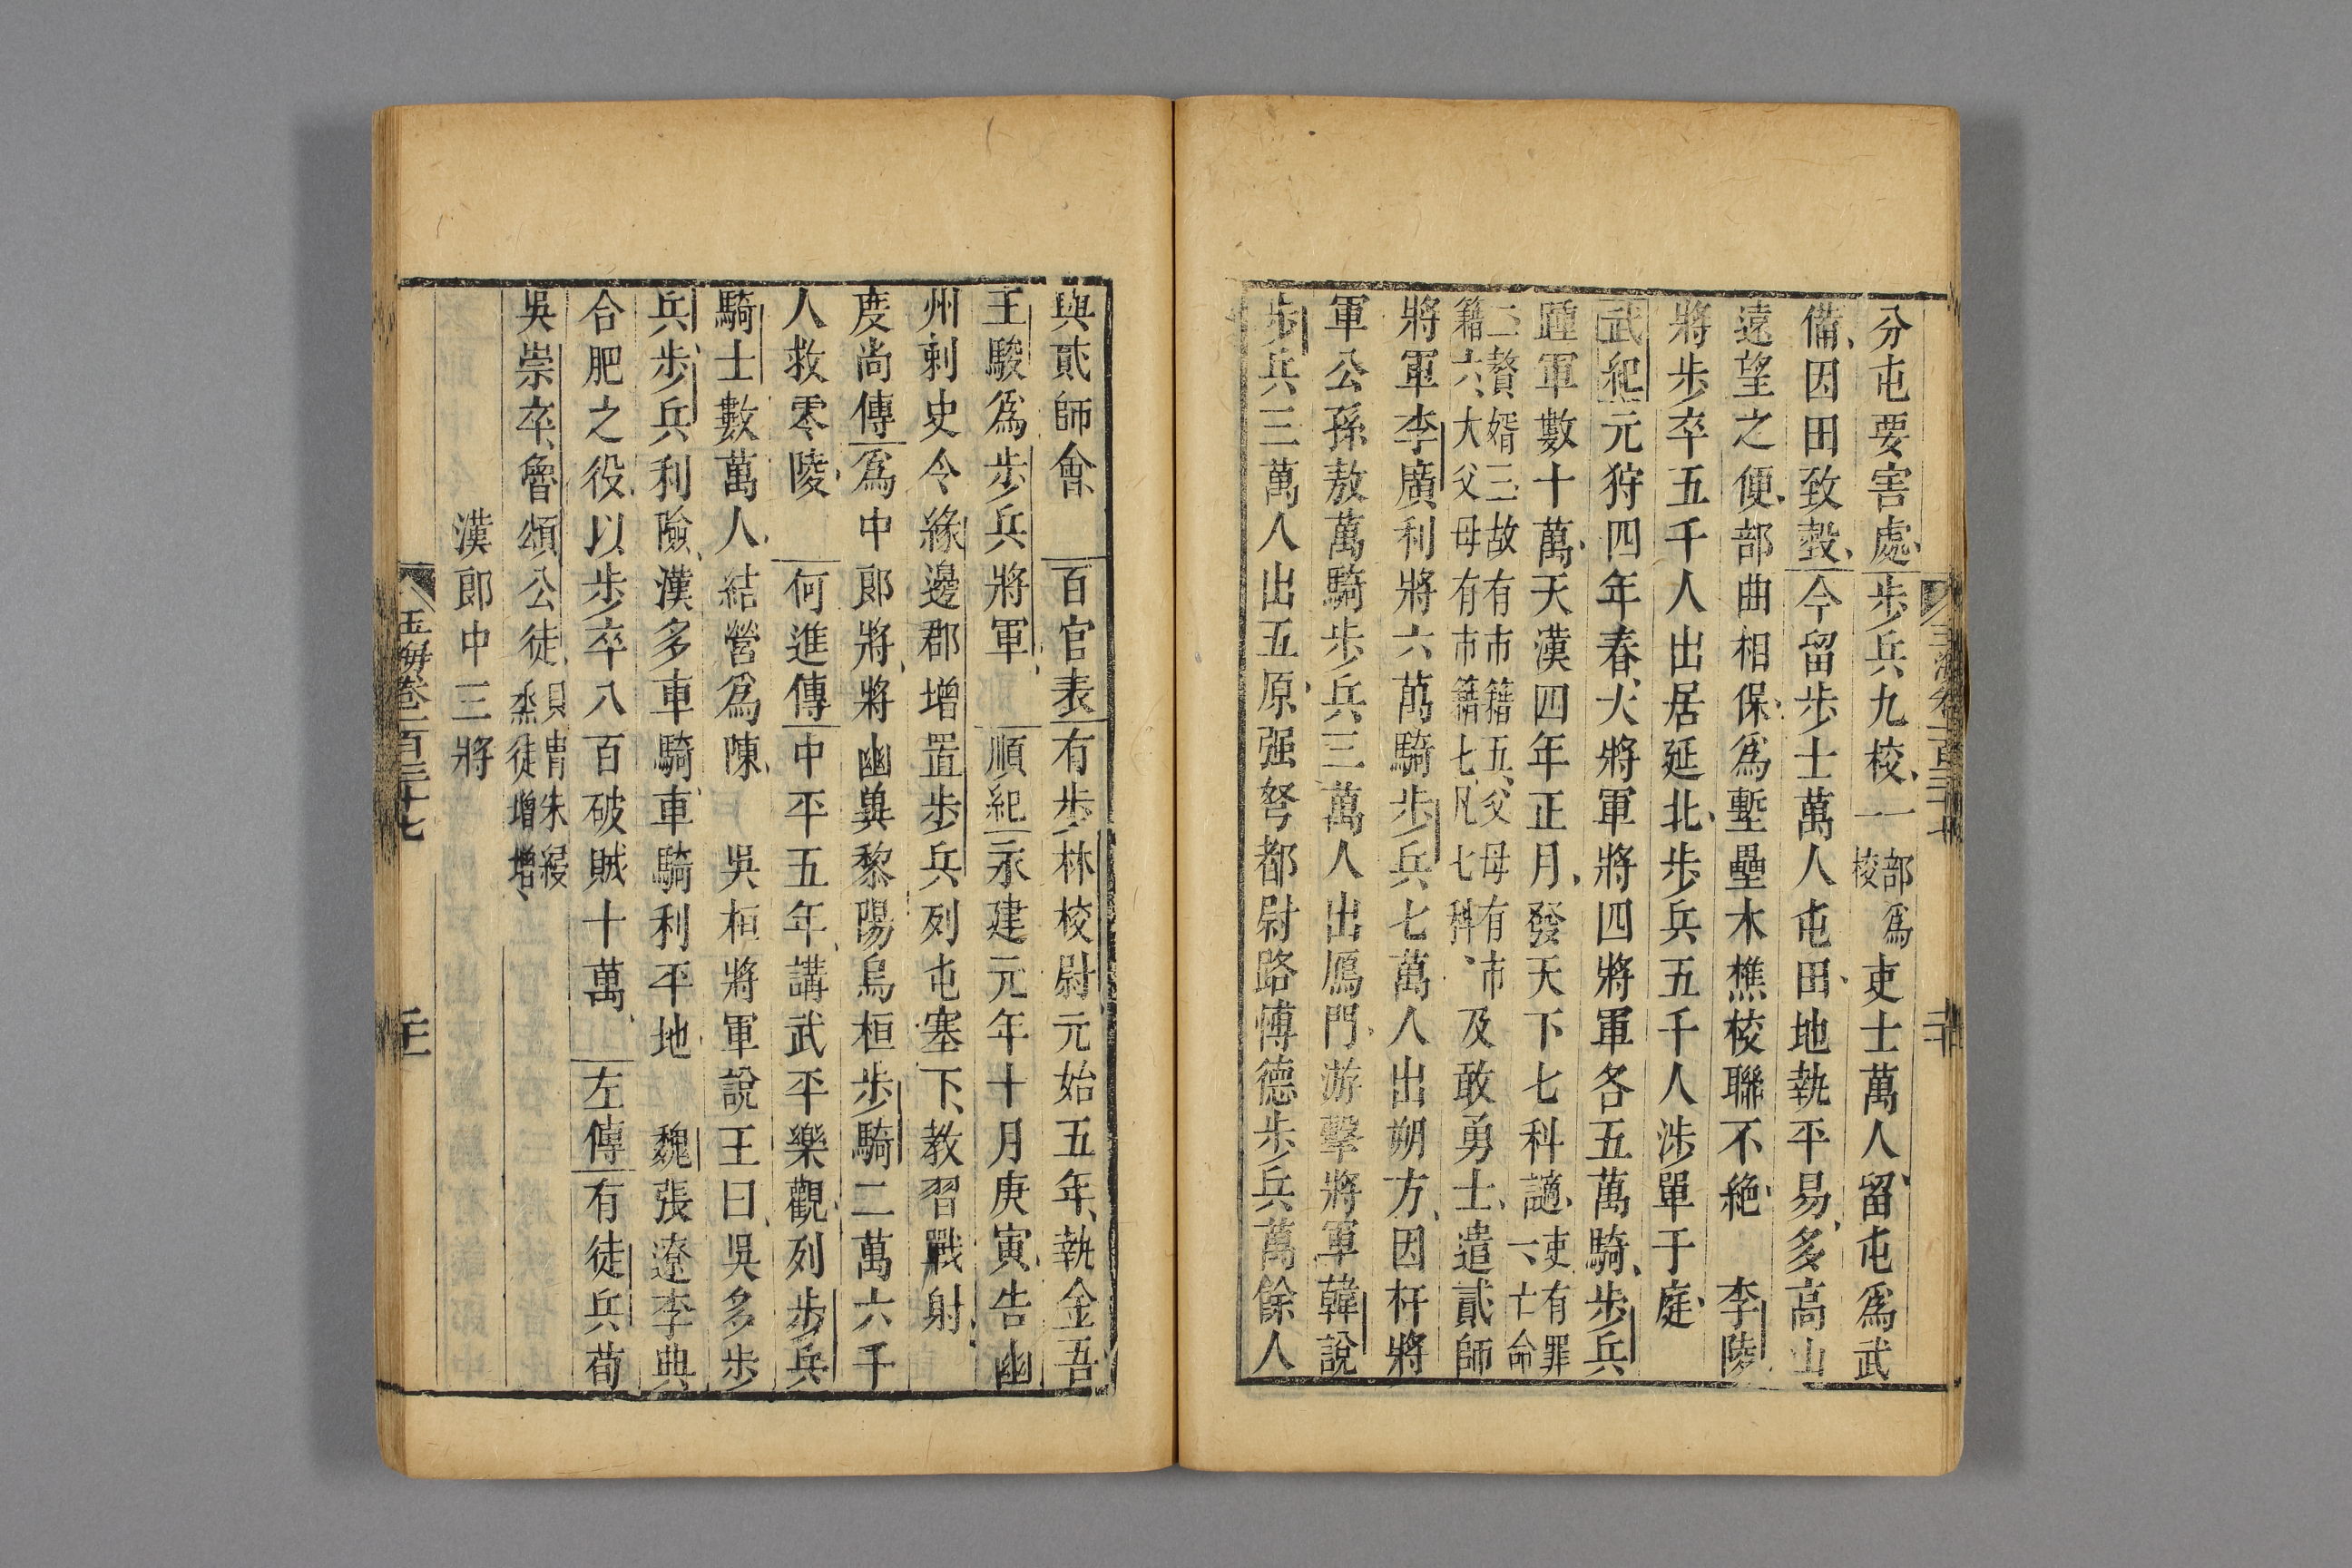 分屯要害處步兵九校一部爲校吏士萬人留屯爲武
備因田致穀今留步士萬人屯田地執平易多高山
遠望之便部曲相保爲塹壘木樵校聯不絶 李陵
將步卒五千人出居延北步兵五千人涉單于庭
武紀元狩四年春大將軍將四將軍各五萬騎步兵
踵軍數十萬天漢四年正月發天下七科讁吏有罪一亡命
二贅婿三故有市籍五父母有市籍六大父母有市籍七凡七科及敢勇士遣貳師
將軍李廣利將六萬騎步兵七萬人出朔方因杅將
軍公孫敖萬騎步兵三萬人出鴈門游擊將軍韓說
步兵三萬人出五原强弩都尉路博德步兵萬餘人
與貳師會 百官表有步林校尉元始五年執金吾
王駿爲步兵將軍 順紀永建元年十月庚寅告幽
州刺史令緣邊郡增置步兵列屯塞下教習戰射
度尚傳爲中郎將將幽兾黎陽烏桓步騎二萬六千
人救零陵 何進傳中平五年講武平樂觀列步兵
騎士數萬人結營爲陳 吳桓將軍說王曰吳多步
兵步兵利險漢多車騎車騎利平地 魏張遼李典
合肥之役以步卒八百破賊十萬 左傳有徒兵荀
吳崇卒魯頌公徒貝冑朱綅烝徒增增
漢郎中三將
玉海卷一百三十七